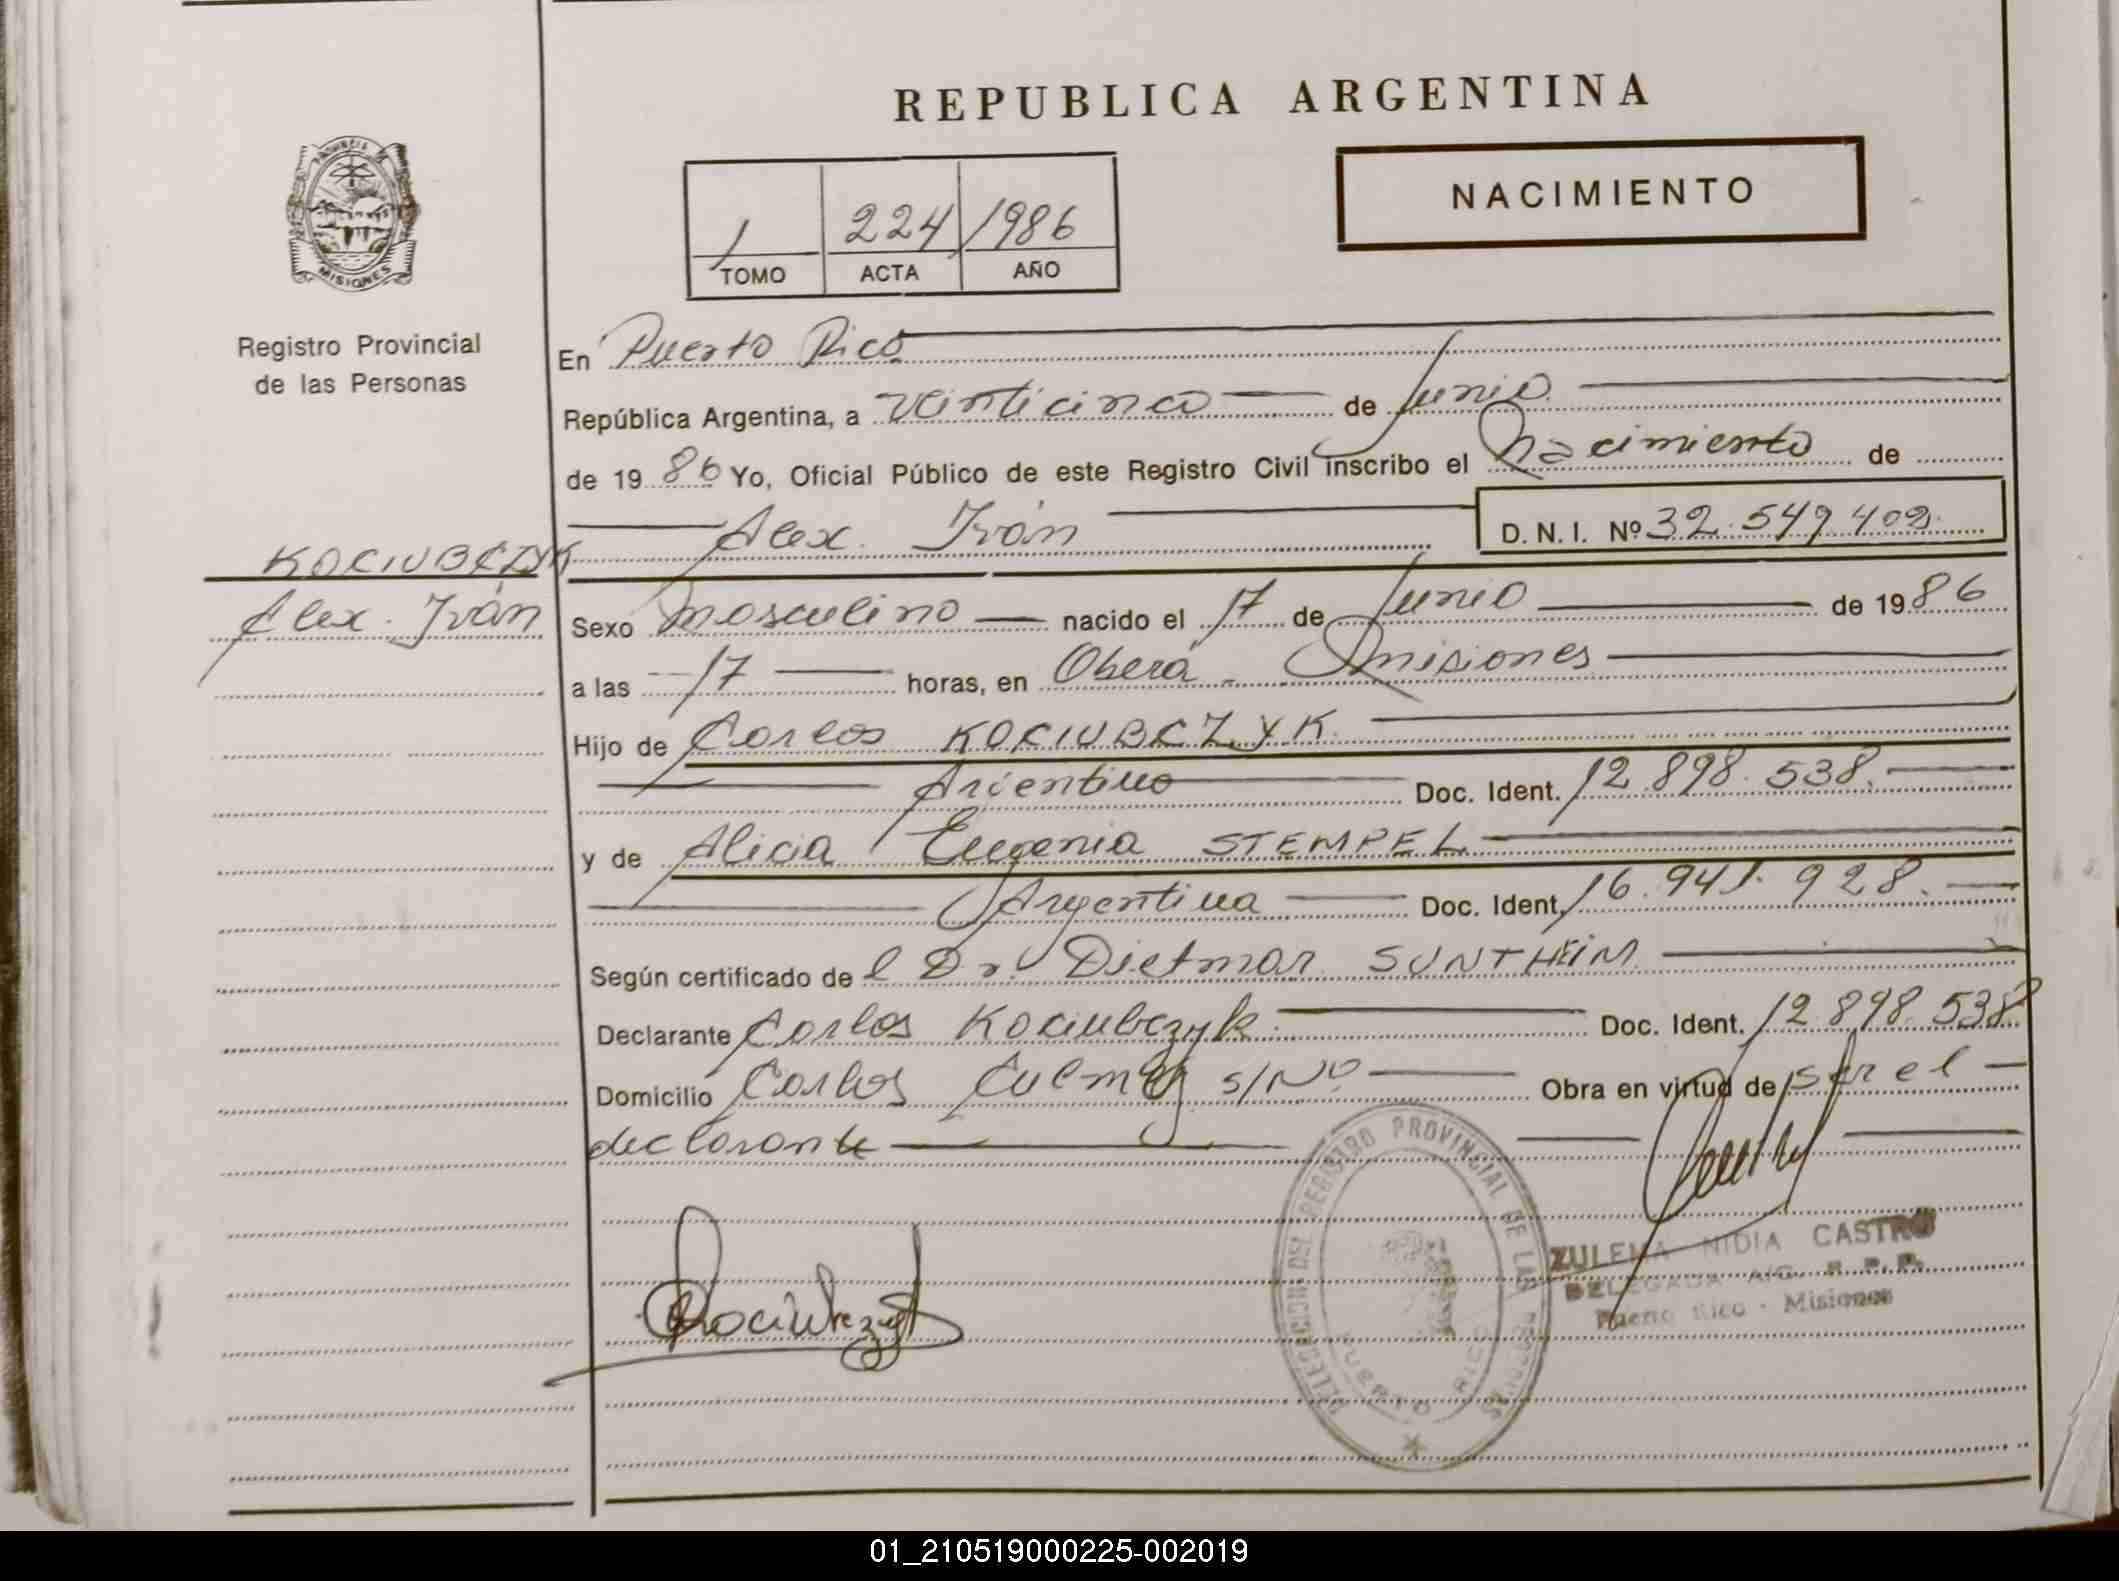 REPUBLICA ARGENTINA
PROVINCIA DE
MISIONES
Registro Provincial
de las Personas
NACIMIENTO
1 224 1986
TOMO ACTA AÑO
En Puerto Rico
República Argentina, a veinticinco de Junio
de 1986 Yo, Oficial Público de este Registro Civil inscribo el Nacimiento de
Alex Iván D. N. I. Nº 32.549.402
KOCIUBCZYK
Alex Iván
Sexo masculino nacido el 17 de Junio de 1986
a las 17 horas, en Oberá - Misiones
Hijo de Carlos KOCIUBCZYK
Argentino Doc. Ident. 12.898.538.
y de Alicia Eugenia STEMPEL
Argentina Doc. Ident. 16.941.928.
Según certificado de l Dr. Dietmar SUNTHEIM
Declarante Carlos Kociubczyk Doc. Ident. 12.898.538
Domicilio Carlos Culmey S/Nº Obra en virtud de ser el
declarante
DELEGACION DEL REGISTRO PROVINCIAL DE LAS PERSONAS
PUERTO RICO
ZULEMA NIDIA CASTRO
DELEGADA A/C. R. P. P.
Puerto Rico - Misiones
Kociubczyk
01_210519000225-002019